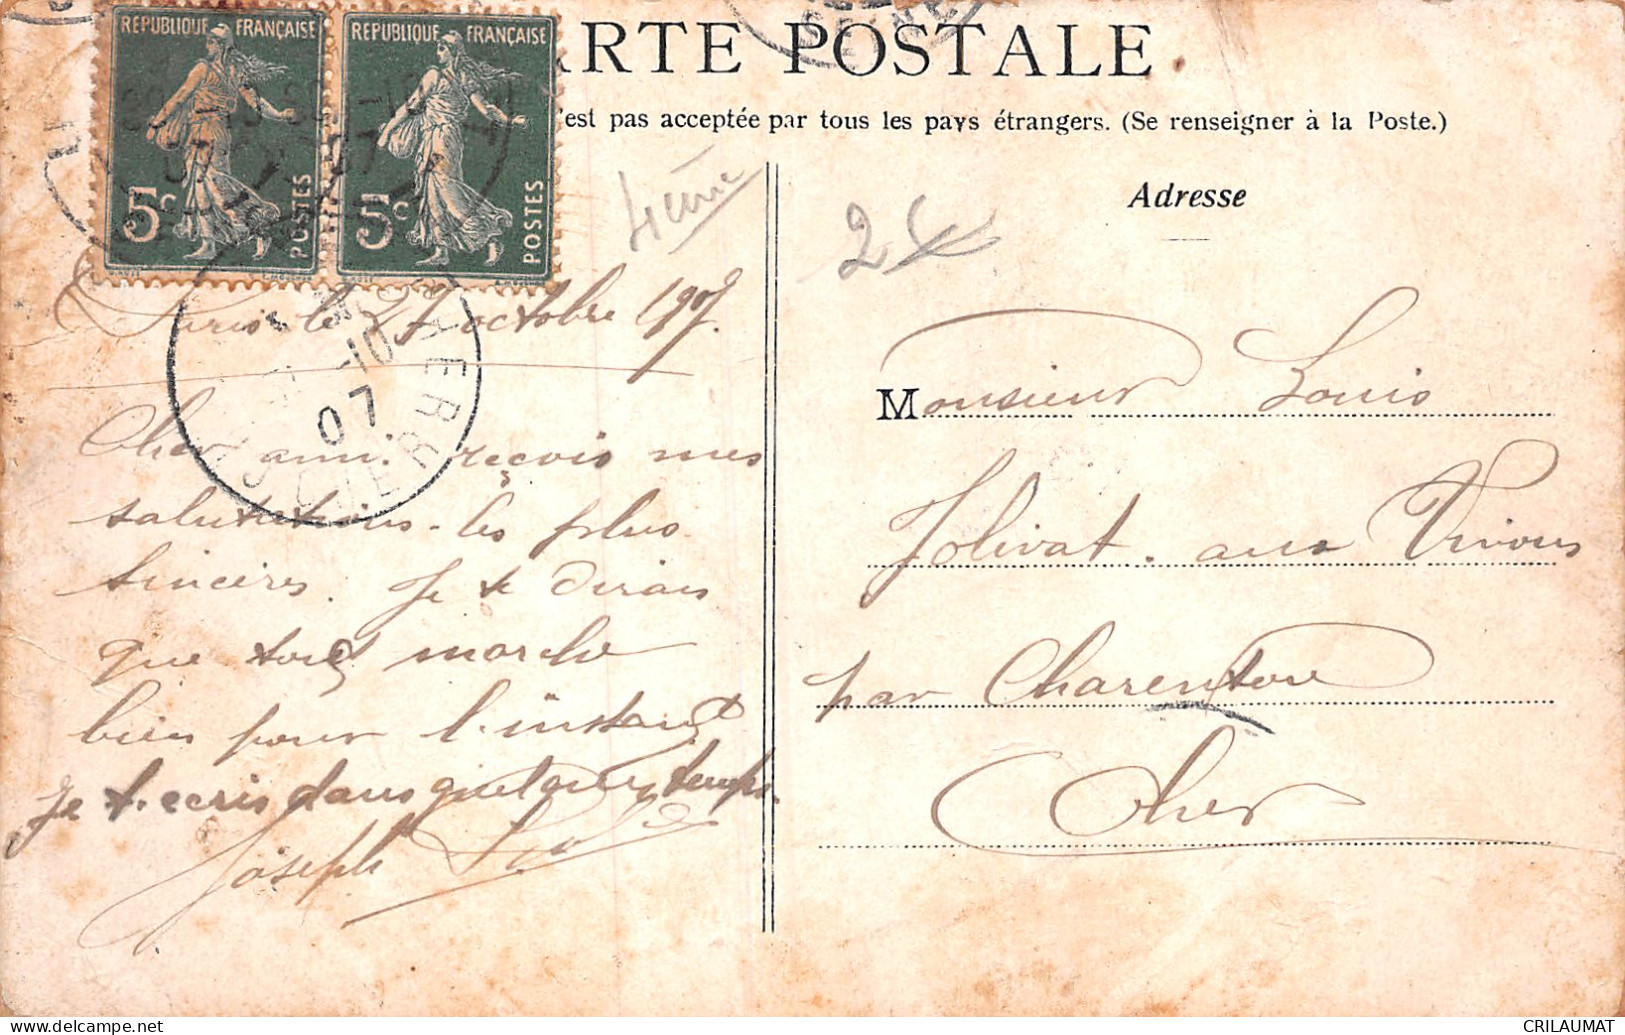 RÉPUBLIQUE FRANÇAISE
5c POSTES
RÉPUBLIQUE FRANÇAISE
5c POSTES
ARTE POSTALE
'est pas acceptée par tous les pays étrangers. (Se renseigner à la Poste.)
4ème
Adresse
Paris le 27 octobre 1907.
-10
07
CHER
Cher ami. reçois mes
salutations les plus
sincères. Je te dirais
que tout marche
bien pour l'instant
Je t'ecris dans quelques temps.
Joseph
Monsieur Louis
Jolivat. aux
par Charenton
Cher
CRILAUMAT